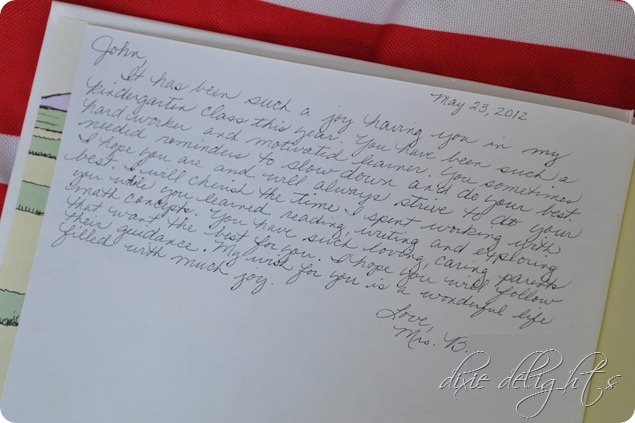 May 23, 2012
John,
It has been such a joy having you in my
kindergarten class this year. You have been such a
hard worker and motivated learner. You sometimes
needed reminders to slow down and do your best.
I hope you are and will always strive to do your
best. I will cherish the time I spent working with
you while you learned reading, writing and exploring
math concepts. You have such loving, caring parents
that want the best for you. I hope you will follow
their guidance. My wish for you is a wonderful life
filled with much joy.
Love,
Mrs. B.
dixie delights